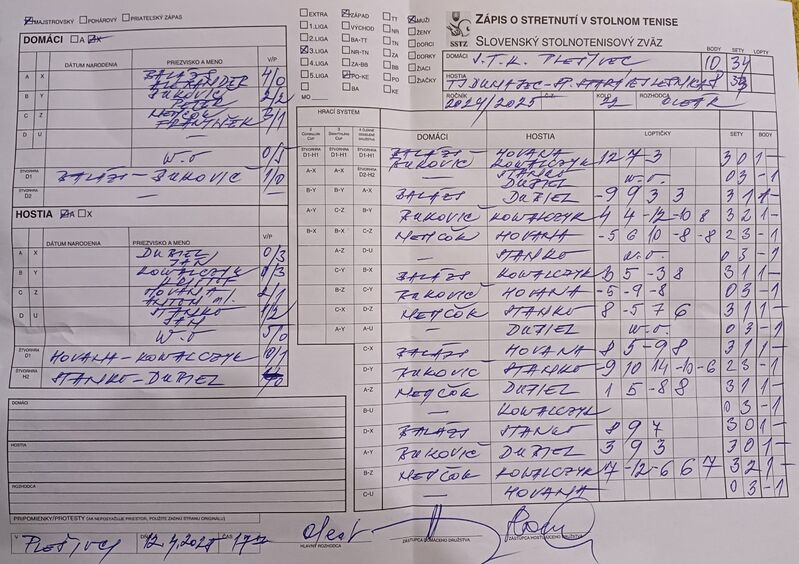 MAJSTROVSKÝ POHÁROVÝ PRIATEĽSKÝ ZÁPAS
DOMÁCI A X
DÁTUM NARODENIA PRIEZVISKO A MENO V/P
A X BALÁŽS ALEXANDER 4/0
B Y BUKOVIČ PETER 2/2
C Z METČOK FRANTIŠEK 3/1
D U —
W.O 0/5
ŠTVORHRA D1 BALÁŽS - BUKOVIČ 1/0
ŠTVORHRA D2 — —
HOSTIA A X
DÁTUM NARODENIA PRIEZVISKO A MENO V/P
A X DUBIEL JÁN 0/3
B Y KOWALCZYK 0/3
C Z HOVANA ANTON ml. 2/1
D U STANKO JÁN 1/2
W.O 5/0
ŠTVORHRA H1 HOVANA - KOWALCZYK 0/1
ŠTVORHRA H2 STANKO - DUBIEL
DOMÁCI
HOSTIA
ROZHODCA
PRIPOMIENKY/PROTESTY (AK NEPOSTAČUJE PRIESTOR, POUŽITE ZADNÚ STRANU ORIGINÁLU)
V PLEŠIVCI DŇA 12.4.2025 ČAS
EXTRA ZÁPAD TT MUŽI
1.LIGA VÝCHOD NR ŽENY
2.LIGA BA-TT TN DORCI
3.LIGA NR-TN ZA DORKY
4.LIGA ZA-BB BB ŽIACI
5.LIGA PO-KE PO ŽIAČKY
BA KE
MO
SSTZ
ZÁPIS O STRETNUTÍ V STOLNOM TENISE
SLOVENSKÝ STOLNOTENISOVÝ ZVÄZ
DOMÁCI S.T.K. PLEŠIVEC BODY 10 SETY 34 LOPTY
HOSTIA TJ DUNAJEC - 8
ROČNÍK 2024/2025 Č.Z. KOLO 22 ROZHODCA OLEÁR
HRACÍ SYSTÉM
DOMÁCI HOSTIA LOPTIČKY SETY BODY
ŠTVORHRA D1-H1 ŠTVORHRA D1-H1 ŠTVORHRA D1-H1 BALÁŽS BUKOVIČ HOVANA KOWALCZYK 12 7 3 3 0 1 -
A-X A-X ŠTVORHRA D2-H2 — STANKO DUBIEL W.O. 0 3 - 1
B-Y B-Y A-X BALÁŽS DUBIEL -9 9 3 3 3 1 1 -
A-Y C-Z B-Y BUKOVIČ KOWALCZYK 4 4 -12 -10 8 3 2 1 -
B-X B-X C-Z METČOK HOVANA -5 6 10 -8 -8 2 3 - 1
A-Z D-U — STANKO W.O. 0 3 - 1
C-Y B-X BALÁŽS KOWALCZYK 6 5 -3 8 3 1 1 -
B-Z C-Y BUKOVIČ HOVANA -5 -9 -8 0 3 - 1
C-X D-Z METČOK STANKO 8 -5 7 6 3 1 1 -
A-Y A-U — DUBIEL W.O. 0 3 - 1
C-X BALÁŽS HOVANA 8 5 -9 8 3 1 1 -
D-Y BUKOVIČ STANKO -9 10 14 -10 -6 2 3 - 1
A-Z METČOK DUBIEL 1 5 -8 8 3 1 1 -
B-U — KOWALCZYK 0 3 - 1
D-X BALÁŽS STANKO 8 9 7 3 0 1 -
A-Y BUKOVIČ DUBIEL 3 9 3 3 0 1 -
B-Z METČOK KOWALCZYK 7 -12 -6 6 7 3 2 1 -
C-U — HOVANA 0 3 - 1
HLAVNÝ ROZHODCA ZÁSTUPCA DOMÁCEHO DRUŽSTVA ZÁSTUPCA HOSŤUJÚCEHO DRUŽSTVA